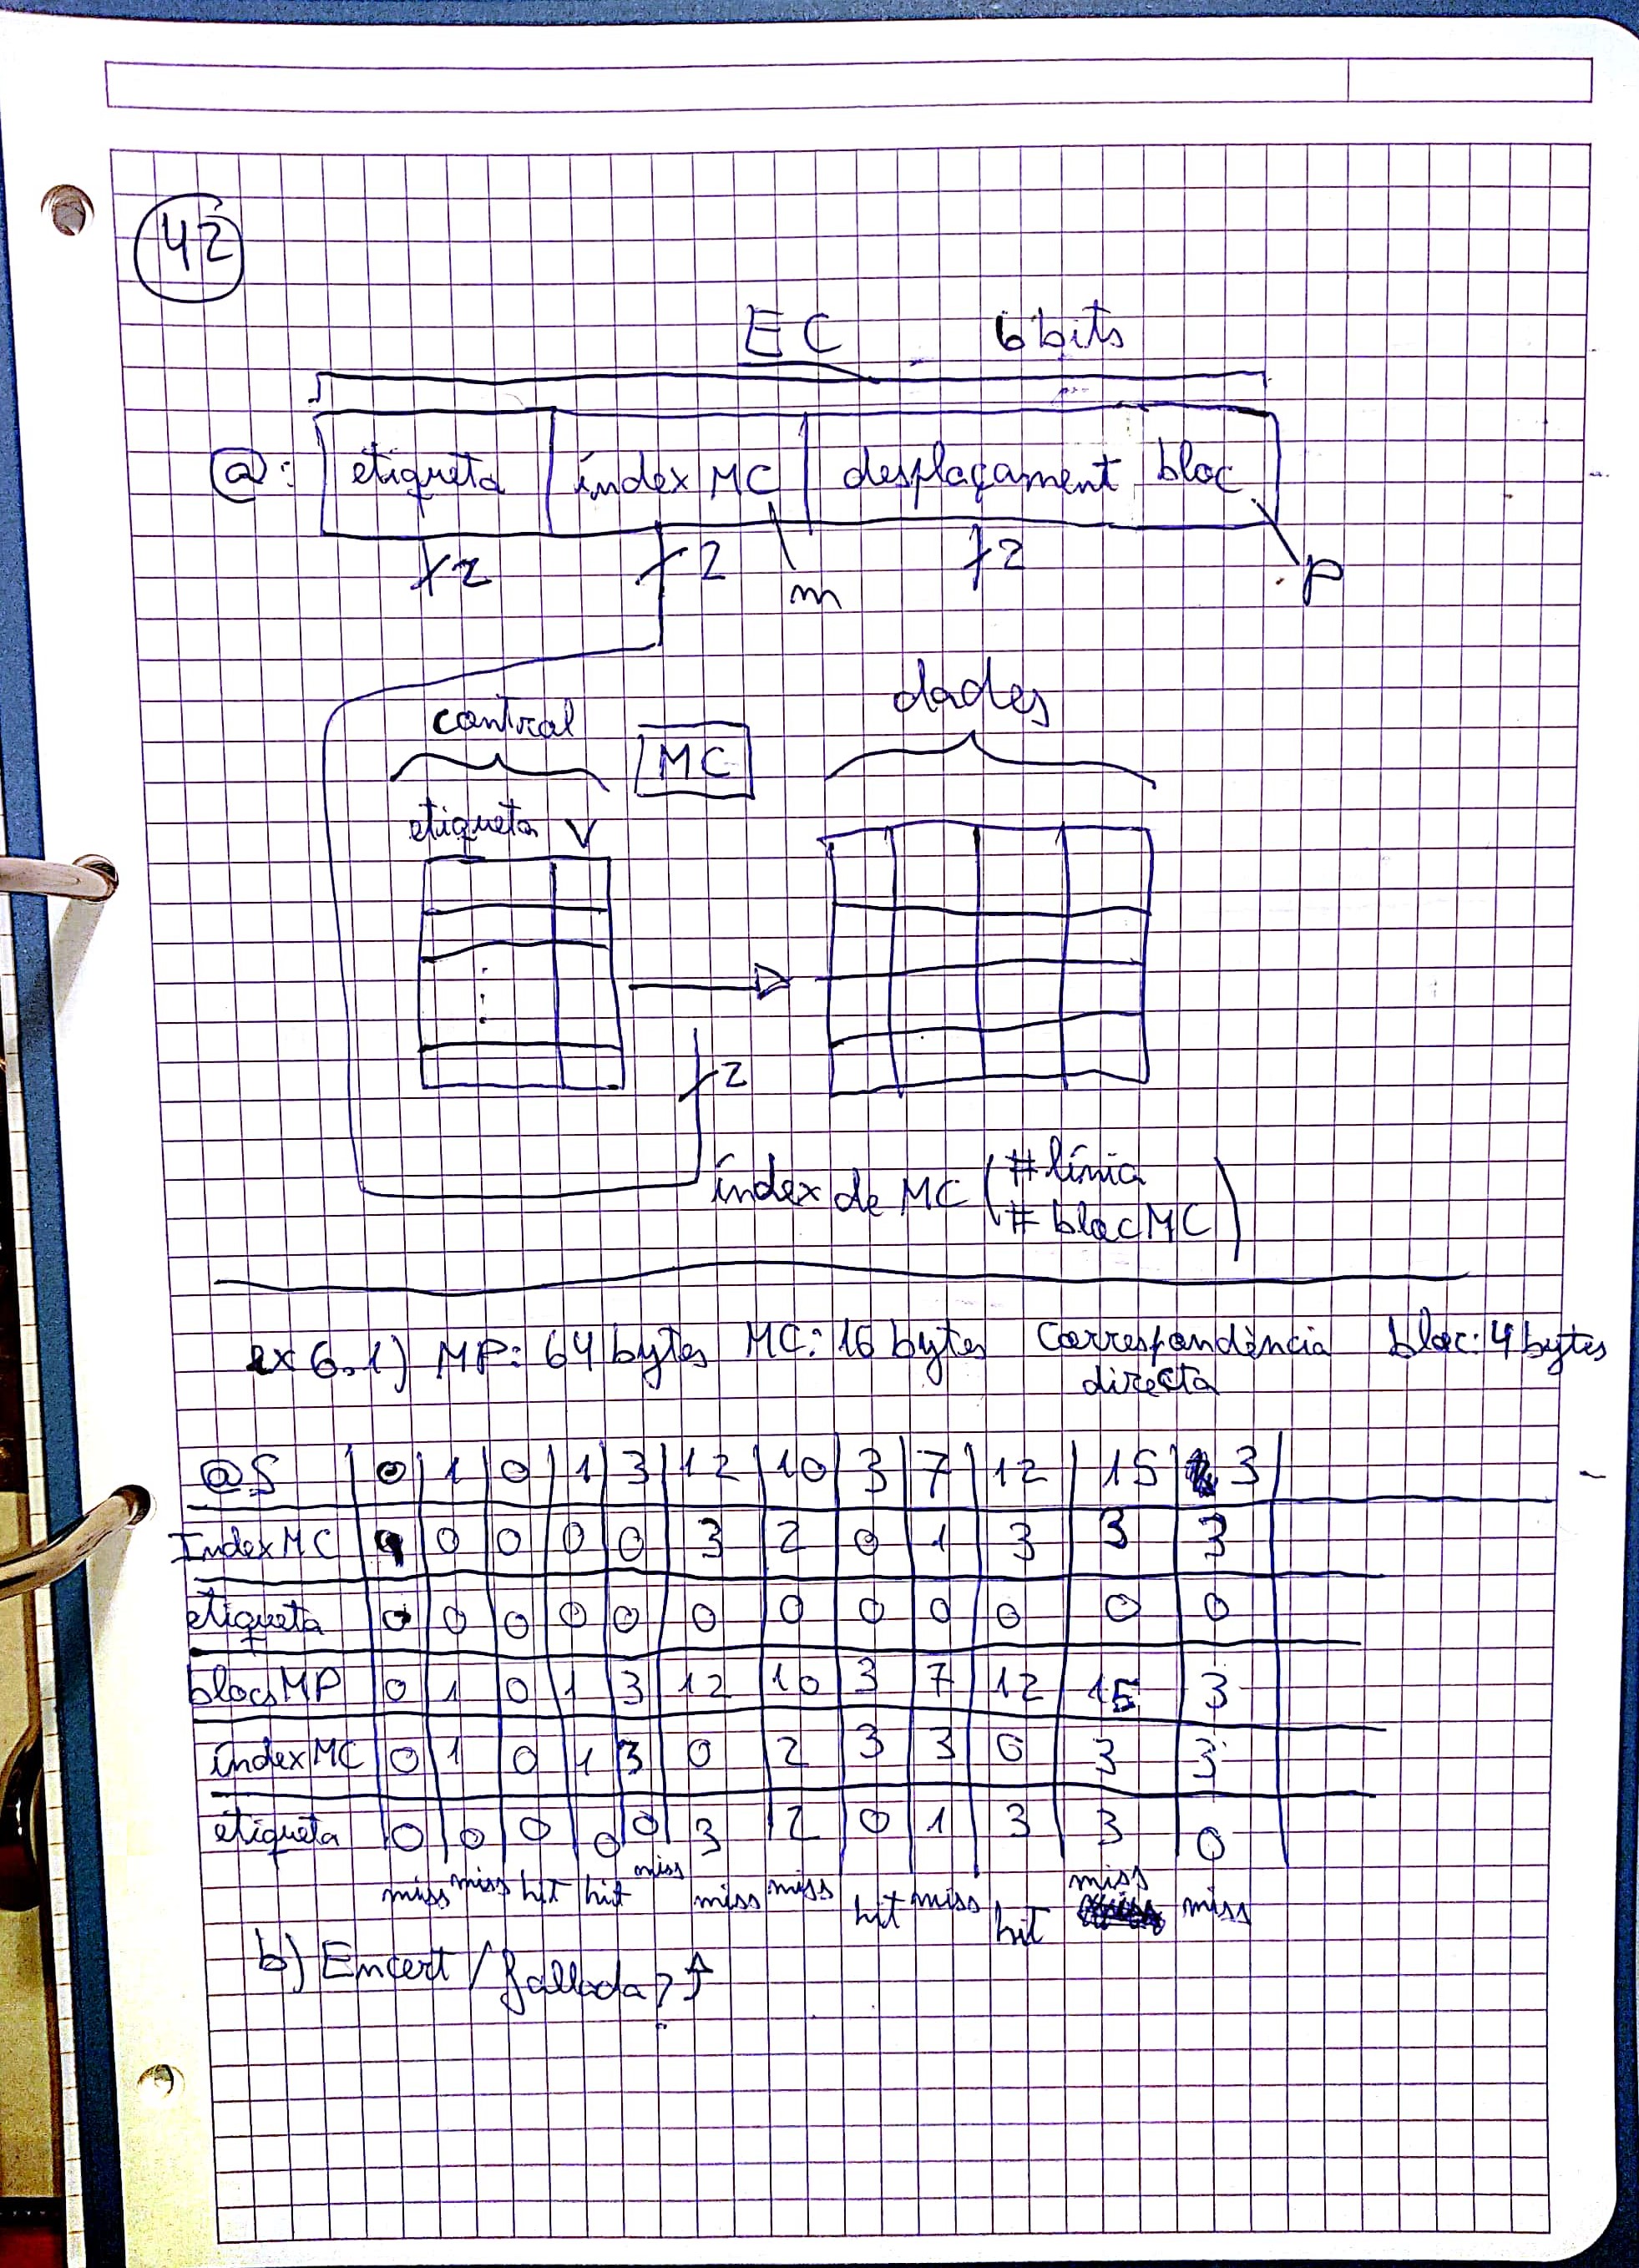 42
EC 6 bits
@: etiqueta índex MC desplaçament bloc
2 2 m 2 p
control MC dades
etiqueta V
2
índex de MC (#línia
#bloc MC)
ex 6.1) MP: 64 bytes MC: 16 bytes Correspondència bloc: 4 bytes
directa
@S 0 1 0 1 3 12 10 3 7 12 15 3
Index MC 0 0 0 0 3 2 0 1 3 3 3
etiqueta 0 0 0 0 0 0 0 0 0 0 0 0
blocs MP 0 1 0 1 3 12 10 3 7 12 15 3
índex MC 0 1 0 1 3 0 2 3 3 0 3 3
etiqueta 0 0 0 0 0 3 2 0 1 3 3 0
miss miss hit hit miss miss miss hit miss hit miss miss
b) Encert/fallada?